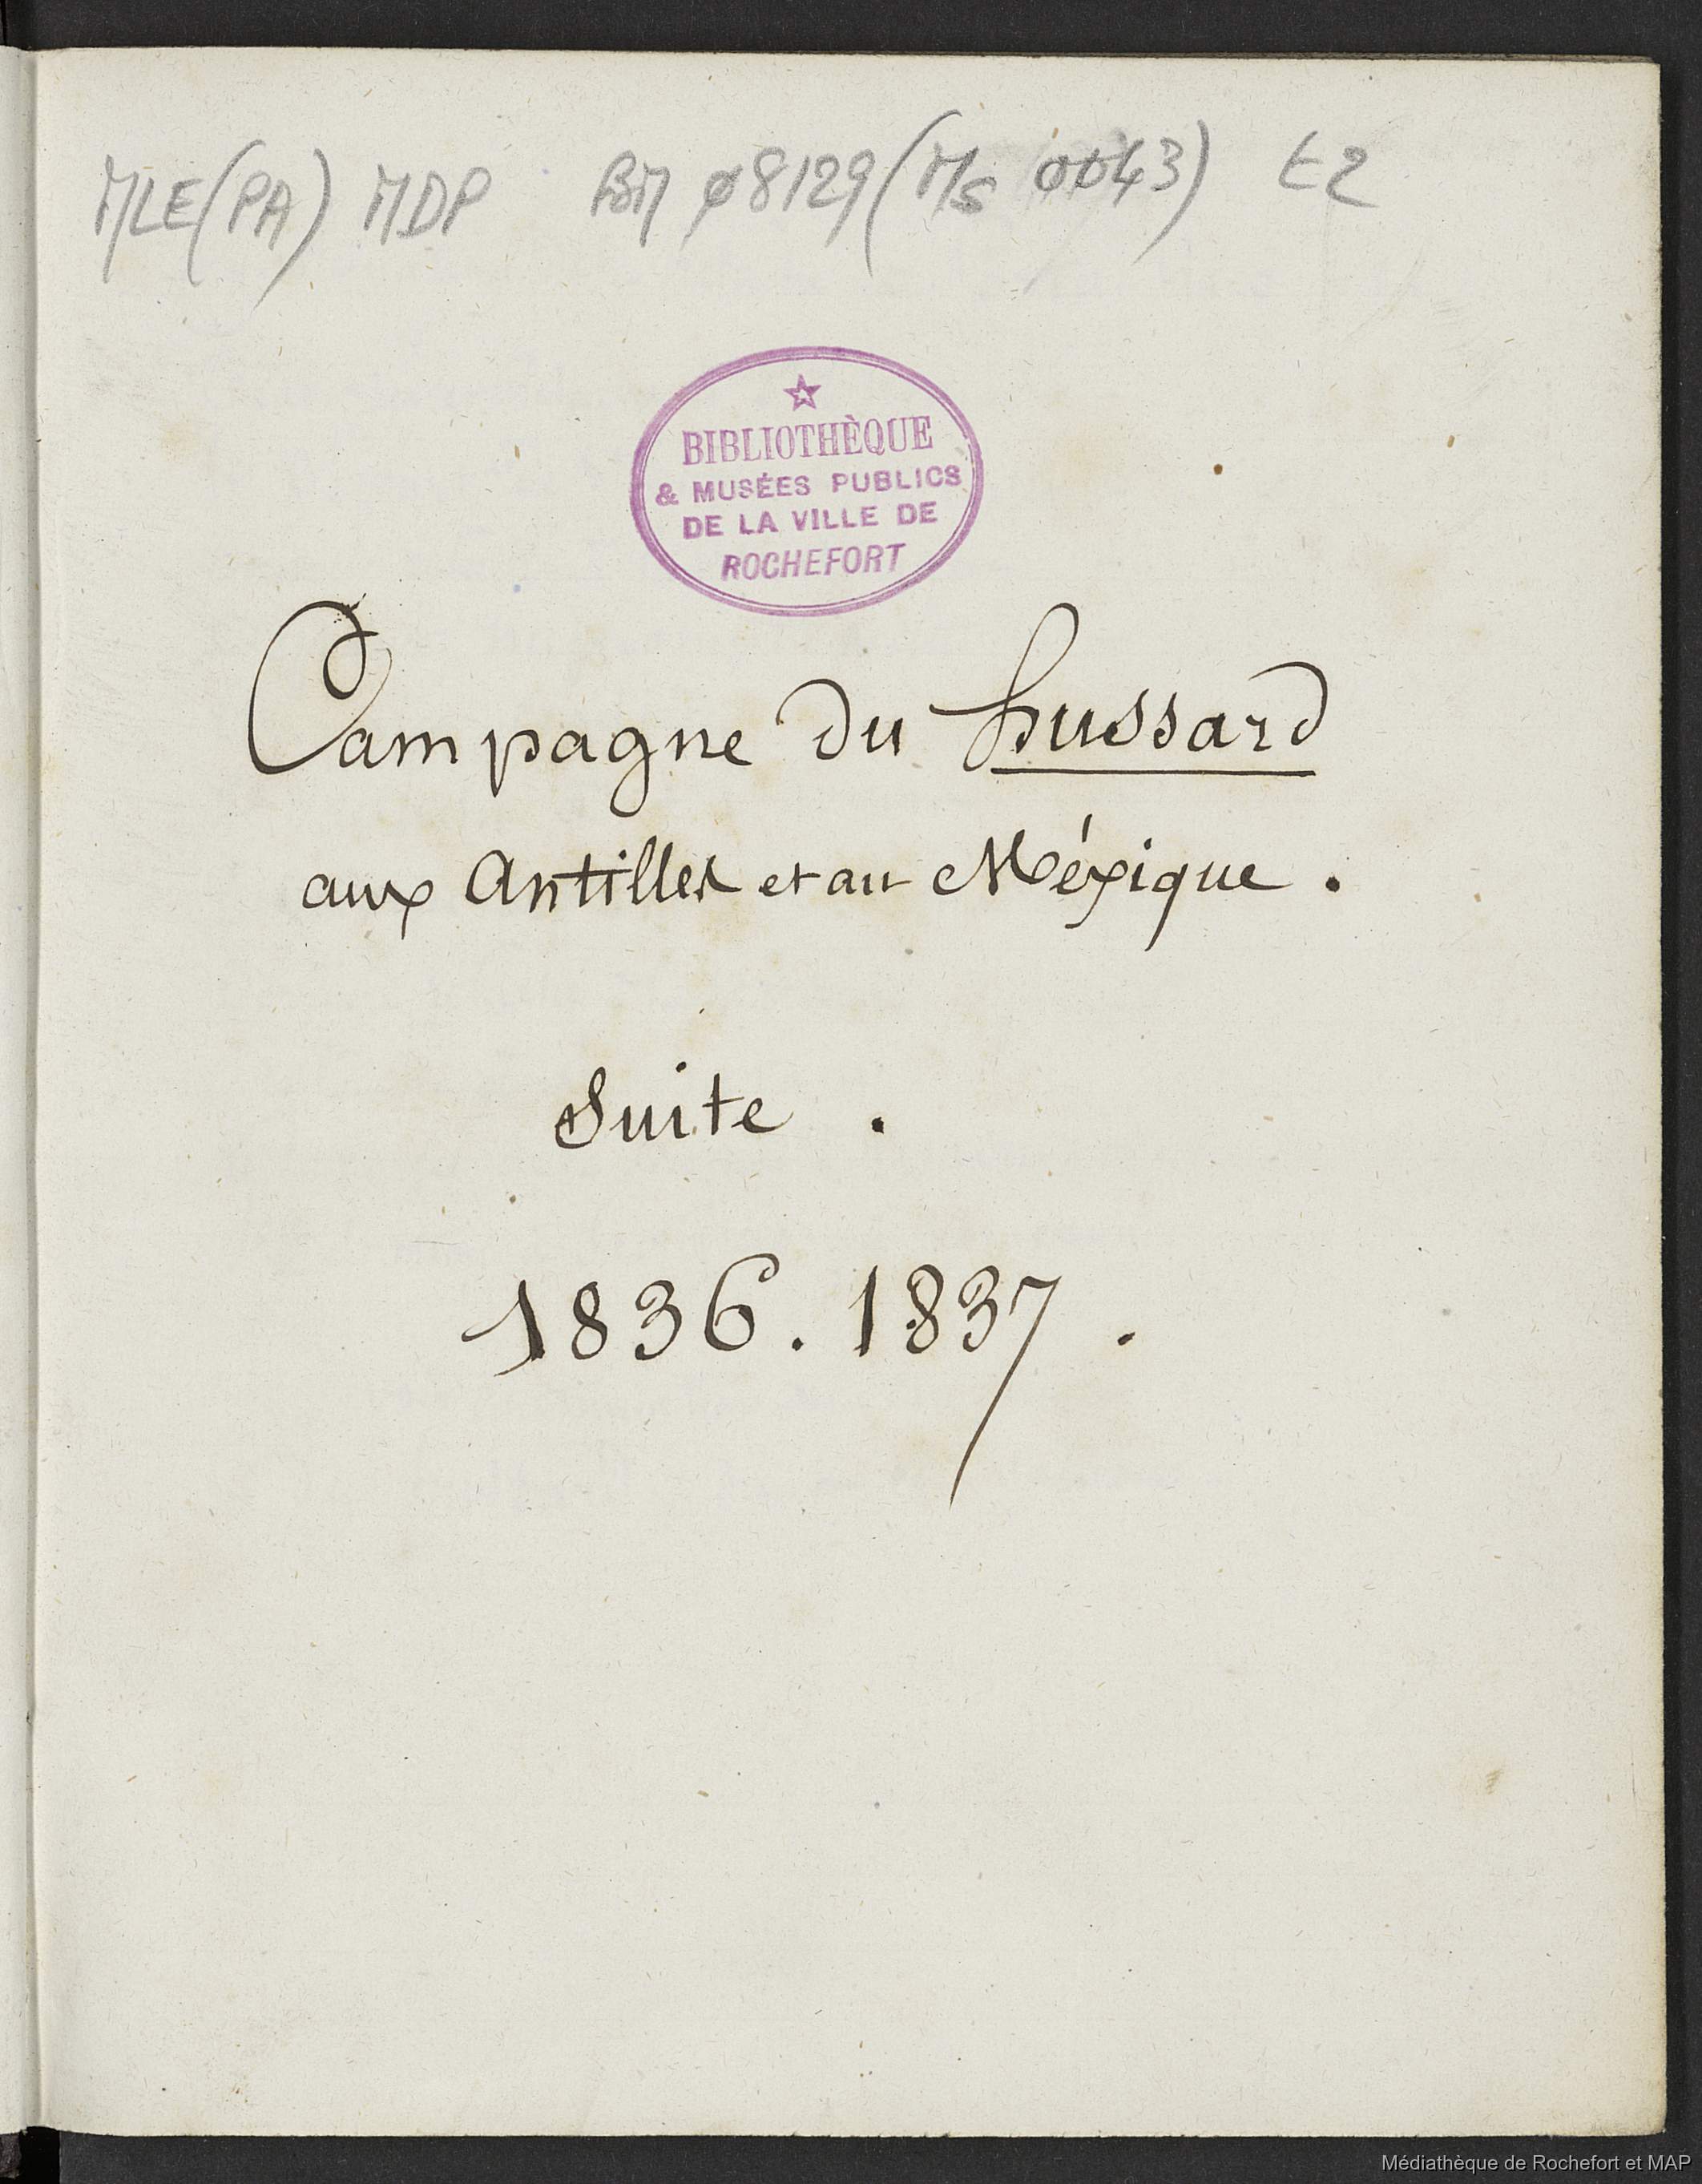 MLE(PA) MDP BM 08129 (Ms 0043) t2
BIBLIOTHÈQUE
& MUSÉES PUBLICS
DE LA VILLE DE
ROCHEFORT
Campagne du hussard
aux Antilles et au Méxique.
Suite.
1836. 1837.
Médiathèque de Rochefort et MAP